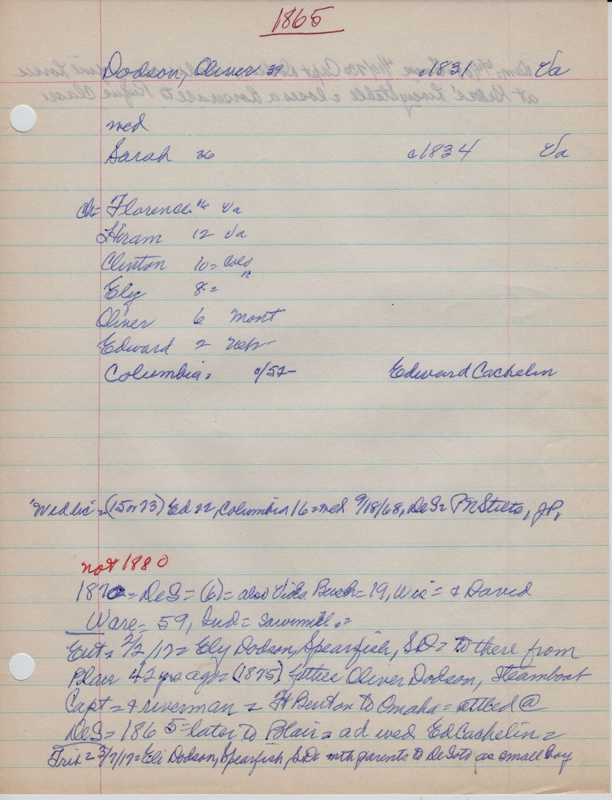 1865
Dodson, Oliver 39 c1831 Va
med
Sarah 36 c1834 Va
ch= Florence 16 Va
Hiram 12 Va
Clinton 10=
Ely 8=
Oliver 6 Mont
Edward 2 Neb-
Columbia= c/52- Edward Cachelin
"Wed lic"= (15 or 73) Ed 22, Columbia 16=med 9/18/68, DeS= JP,
not 1880
1870= DeS= (6)= also Bush=19, Wis= & David
Ware= 59, Ind= sawmill.=
Ent= 2/2/17= Ely Dodson, Spearfish, SD= to there from
Blair 42 yrs ago= (1875) father Oliver Dodson, Steamboat
Capt= & riverman = Ft Benton to Omaha= settled @
DeS= 1865= later to Blair= ad wed Ed Cachelin=
Trib= 3/7/17= Eli Dodson, Spearfish, SD= with parents to DeSoto as small boy